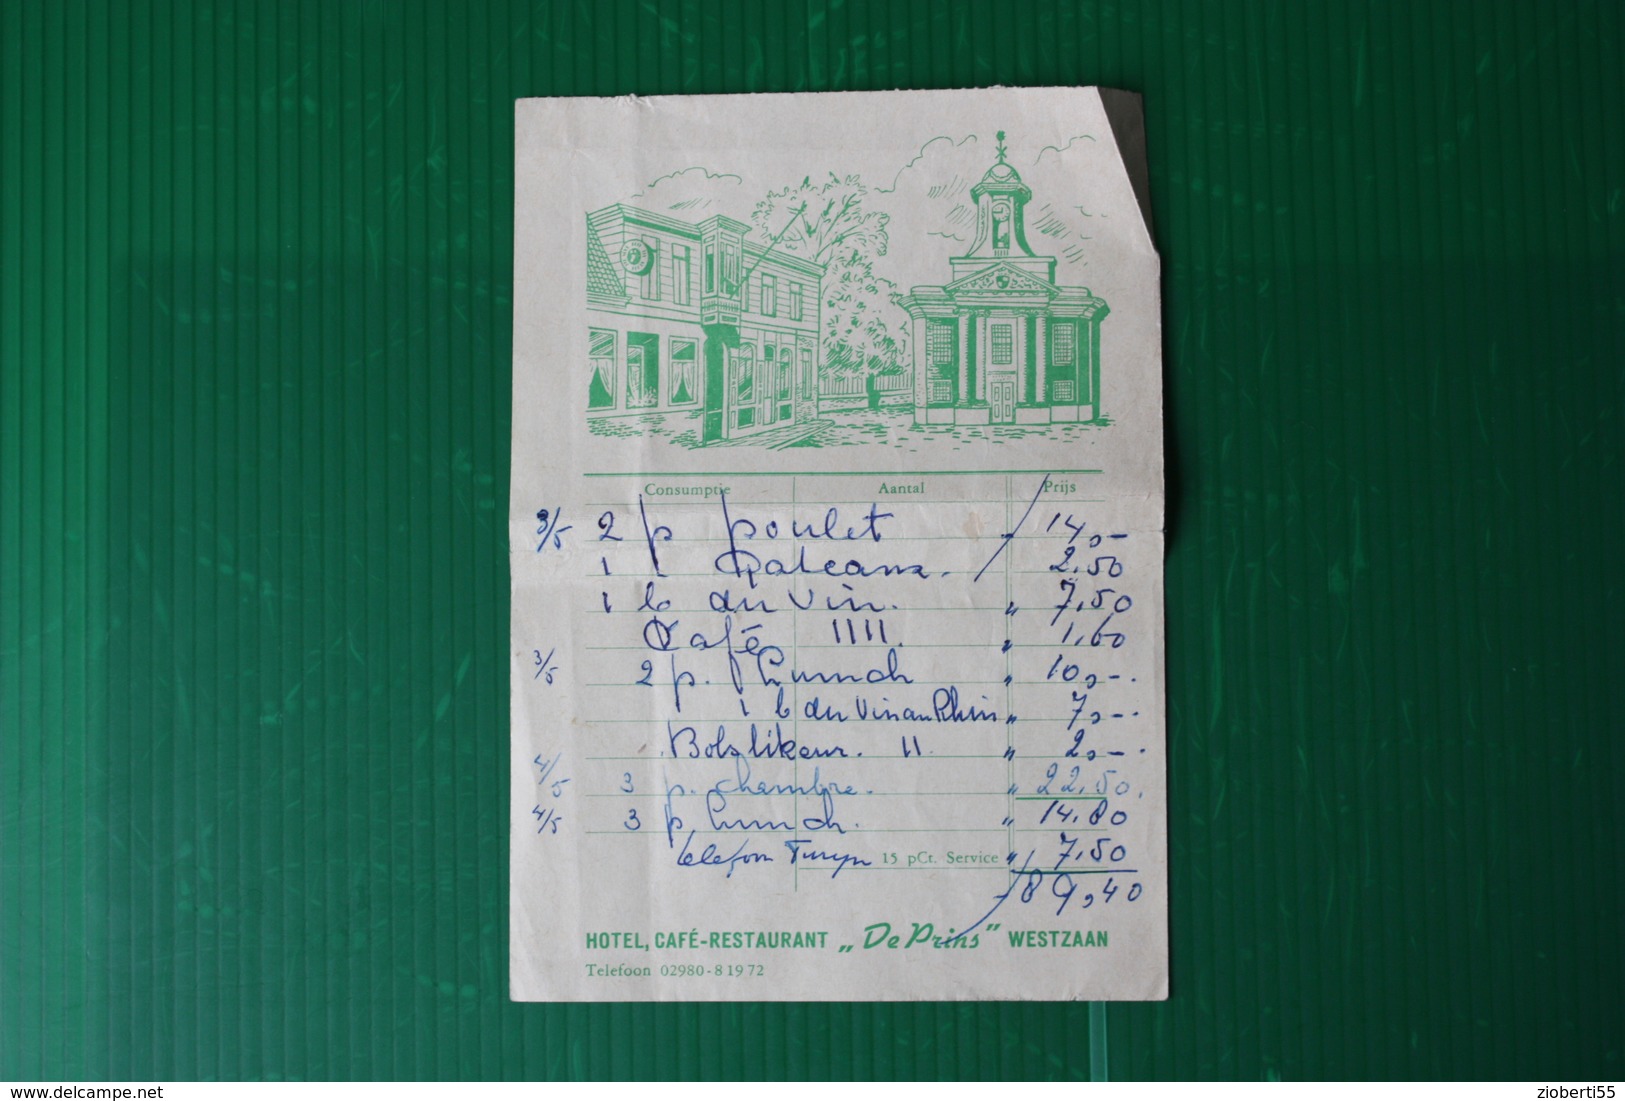 Consumptie Aantal Prijs
3/5 2 p poulet - 14,-
1 Gateaux. 2.50
1 b du Vin. " 7,50
Café IIII. " 1,60
3/5 2 p. Lunch " 10,-.
1 b du Vin au Rhin " 7,-.
Bols likeur. II. " 2,-.
4/5 3 p. chambre. " 22,50.
4/5 3 p, Lunch. " 14.80
telefon Turyn 15 pCt. Service " 7,50
89,40
HOTEL, CAFÉ-RESTAURANT „De Prins" WESTZAAN
Telefoon 02980-81972
delcampe.net
zioberti55